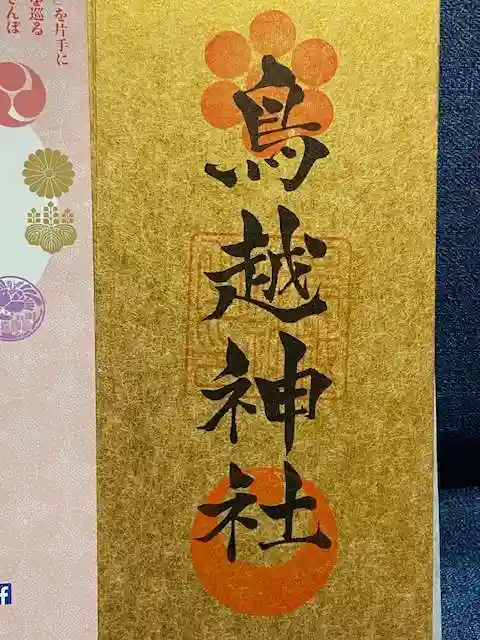 鳥越神社
を片手に
を巡る
さんぽ
f